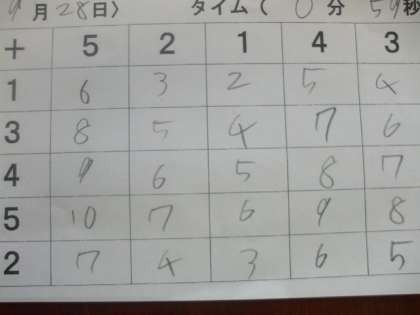 9月28日〉 タイム（ 0分 59秒
+ 5 2 1 4 3
1 6 3 2 5 4
3 8 5 4 7 6
4 9 6 5 8 7
5 10 7 6 9 8
2 7 4 3 6 5